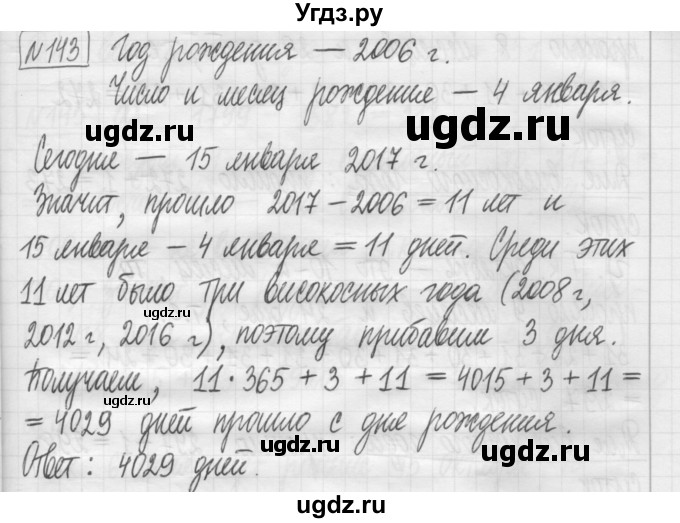 Угдз.ру
№143 Год рождения — 2006 г.
Число и месяц рождение — 4 января.
Сегодня — 15 января 2017 г.
Значит, прошло 2017 – 2006 = 11 лет и
15 января – 4 января = 11 дней. Среди этих
11 лет было три високосных года (2008 г,
2012 г, 2016 г), поэтому прибавим 3 дня.
Получаем, 11·365 + 3 + 11 = 4015 + 3 + 11 =
= 4029 дней прошло с дня рождения.
Ответ: 4029 дней.
ugdz.ru
ugdz.ru
ugdz.ru
ugdz.ru
ugdz.ru
ugdz.ru
ugdz.ru
ugdz.ru